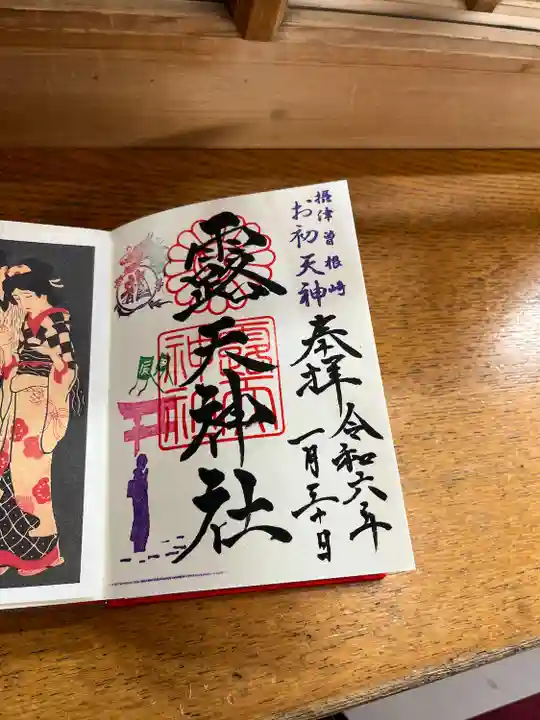 摂津曽根崎
お初天神
奉拝
令和六年
一月三十日
露天神社
露天
神社
龍
辰